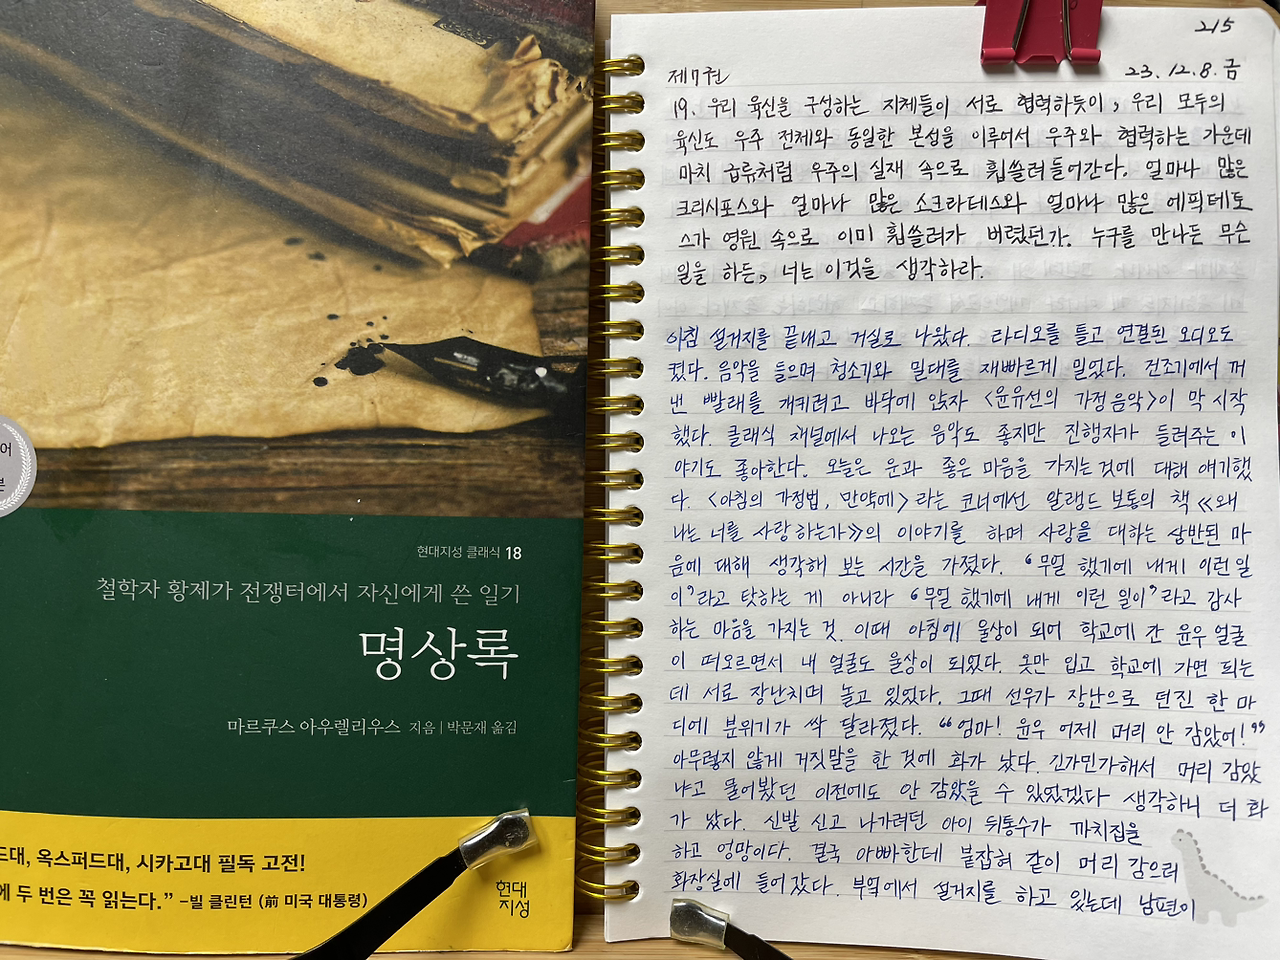 어
본
현대지성 클래식 18
철학자 황제가 전쟁터에서 자신에게 쓴 일기
명상록
마르쿠스 아우렐리우스 지음 | 박문재 옮김
드대, 옥스퍼드대, 시카고대 필독 고전!
에 두 번은 꼭 읽는다.” –빌 클린턴 (前 미국 대통령)
현대
지성
215
제7권 23.12.8.금
19. 우리 육신을 구성하는 지체들이 서로 협력하듯이, 우리 모두의
육신도 우주 전체와 동일한 본성을 이루어서 우주와 협력하는 가운데
마치 급류처럼 우주의 실재 속으로 휩쓸려들어간다. 얼마나 많은
크리시포스와 얼마나 많은 소크라테스와 얼마나 많은 에픽테토
스가 영원 속으로 이미 휩쓸려가 버렸던가. 누구를 만나든 무슨
일을 하든, 너는 이것을 생각하라.
아침 설거지를 끝내고 거실로 나왔다. 라디오를 틀고 연결된 오디오도
켰다. 음악을 들으며 청소기와 밀대를 재빠르게 밀었다. 건조기에서 꺼
낸 빨래를 개키려고 바닥에 앉자 <윤유선의 가정음악>이 막 시작
했다. 클래식 채널에서 나오는 음악도 좋지만 진행자가 들려주는 이
야기도 좋아한다. 오늘은 운과 좋은 마음을 가지는 것에 대해 얘기했
다. <아침의 가정법, 만약에> 라는 코너에선 알랭드 보통의 책 《왜
나는 너를 사랑하는가》의 이야기를 하며 사랑을 대하는 상반된 마
음에 대해 생각해 보는 시간을 가졌다. ‘무얼 했기에 내게 이런 일
이’라고 탓하는 게 아니라 ‘무얼 했기에 내게 이런 일이’라고 감사
하는 마음을 가지는 것. 이때 아침에 울상이 되어 학교에 간 윤우 얼굴
이 떠오르면서 내 얼굴도 울상이 되었다. 옷만 입고 학교에 가면 되는
데 서로 장난치며 놀고 있었다. 그때 선우가 장난으로 던진 한 마
디에 분위기가 싹 달라졌다. “엄마! 윤우 어제 머리 안 감았어!”
아무렇지 않게 거짓말을 한 것에 화가 났다. 긴가민가해서 머리 감았
냐고 물어봤던 이전에도 안 감았을 수 있었겠다 생각하니 더 화
가 났다. 신발 신고 나가려던 아이 뒤통수가 까치집을
하고 엉망이다. 결국 아빠한테 붙잡혀 같이 머리 감으러
화장실에 들어갔다. 부엌에서 설거지를 하고 있는데 남편이